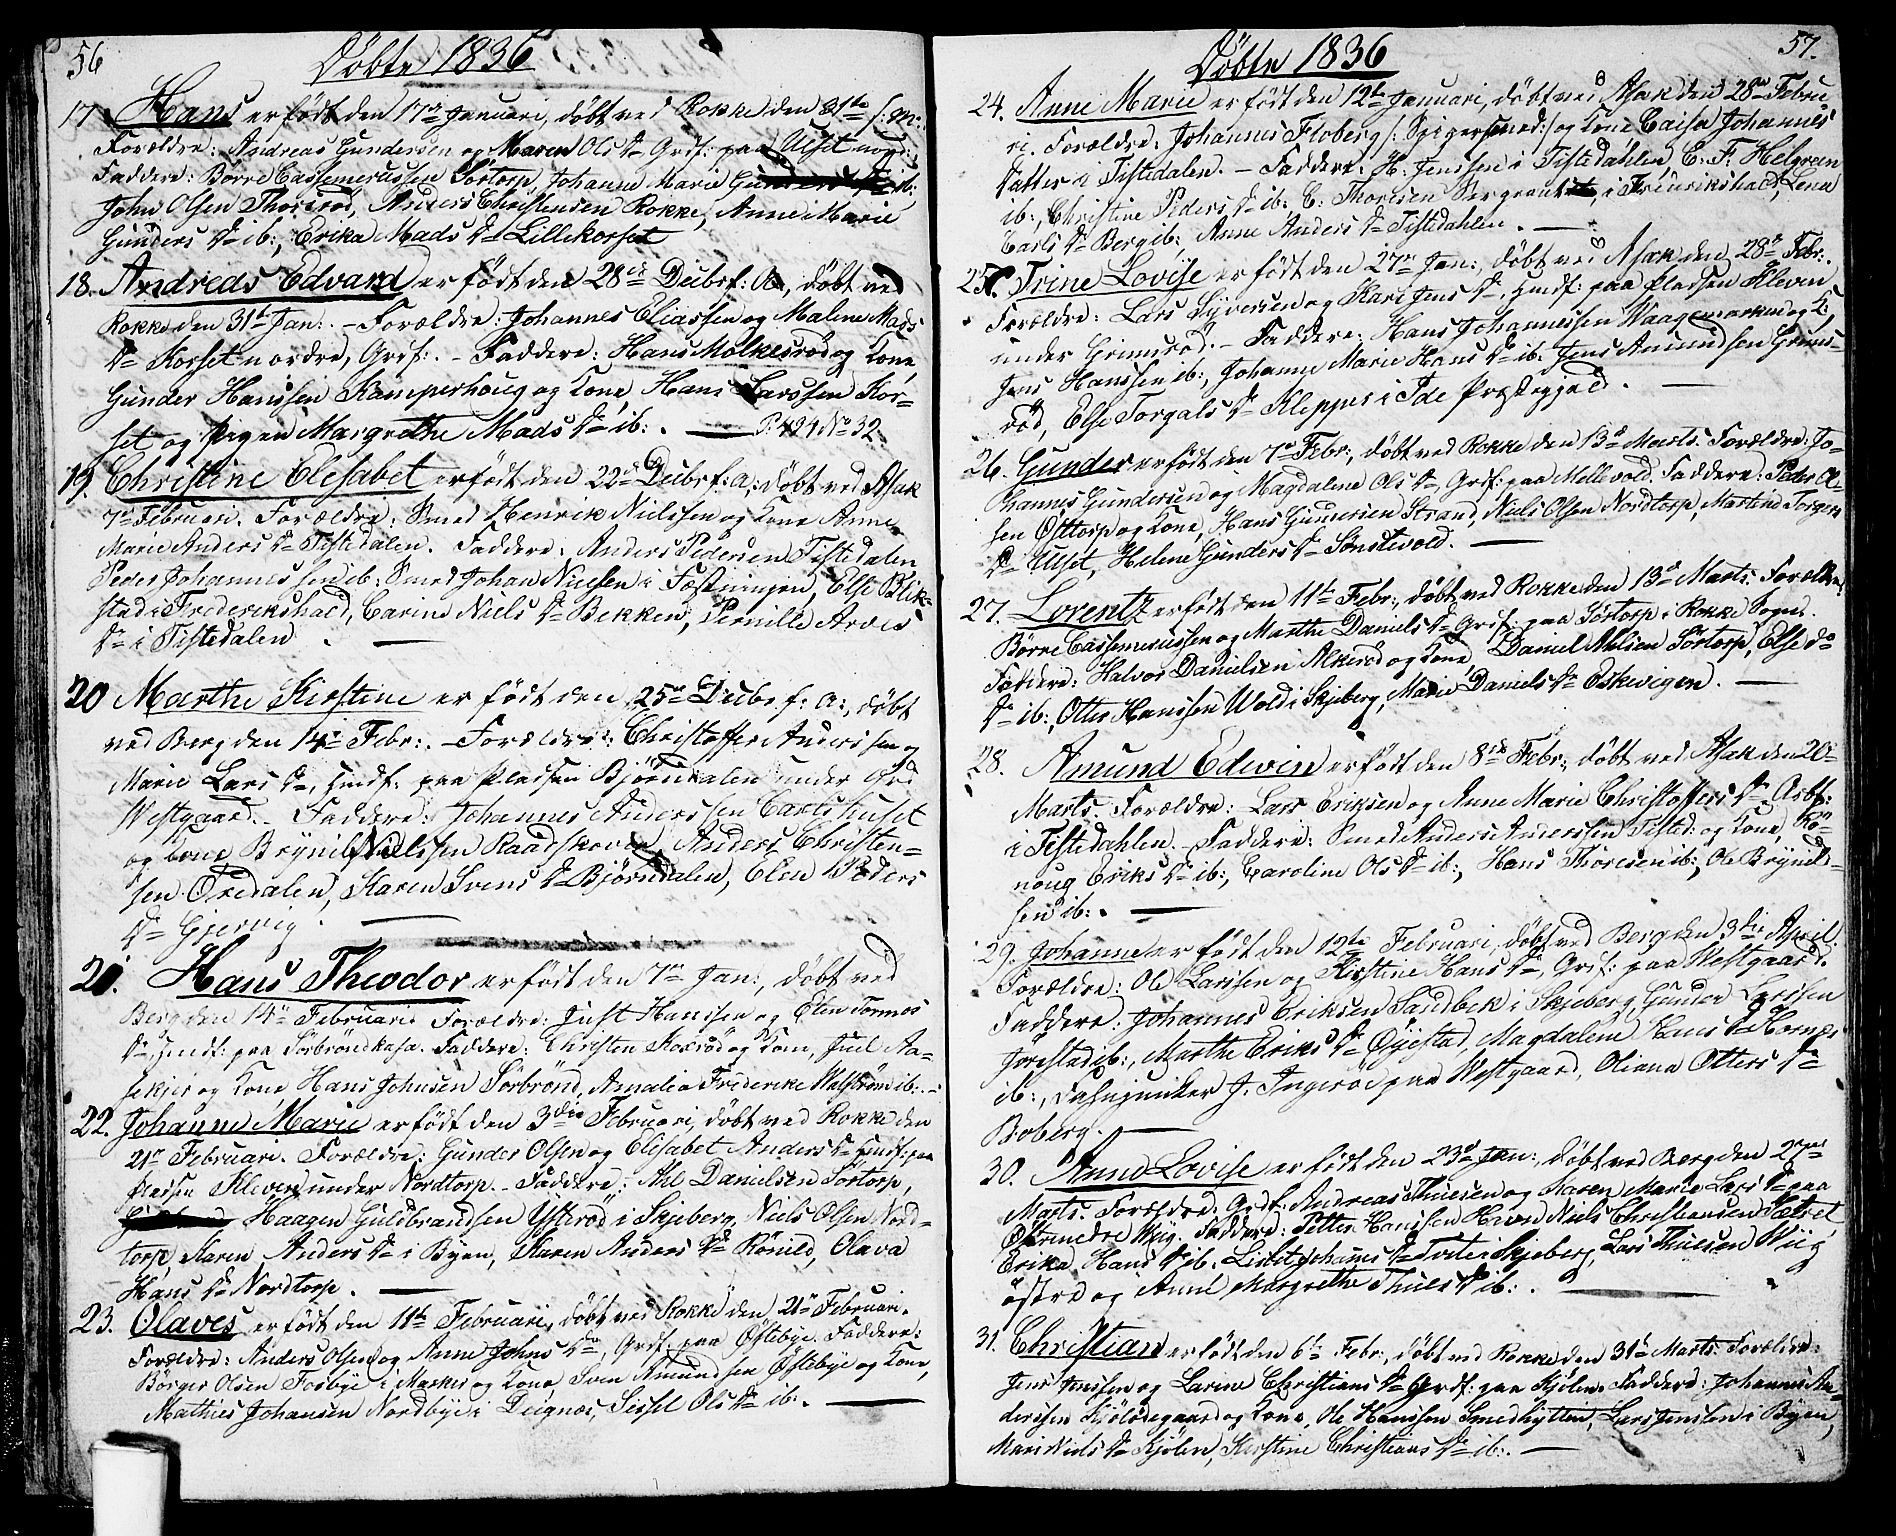 56
Döbte 1836
17. Hans er födt den 17de Januari, döbt ved Rokke den 31te
Forældre: Andreas Gundersen og Maren Ols Dr Grdf: paa Ulset
Faddere: Börre Cassemerussen Sörtorp, Johanne Marie ib:
John Olsen Thorsröd, Anders Christensen Rokke, Anne Marie
Gunders Dr ib:, Erika Mads Dr Lillekorset
18. Andreas Edvard er födt den 28de Decbr f: A:, döbt ved
Rokke den 31te Jan: . - Forældre: Johannes Eliassen og Maline Mads
Dr Korset nordre, Grdf: . - Faddere: Hans Molkesröd og Kone
Gunder Hanssen Kamperhoug og Kone, Hans Larssen Kor-
set og Pigen Margrethe Mads Dr ib: . P: 494 No 32
19. Christine Elisabet er födt den 22de Decbr f: A:, döbt ved Asak
7de Februari. Forældre: Smed Henrik Nielssen og Kone Anne
Marie Anders Dr Tistedalen. Faddere: Anders Pedersen Tistedalen
Peder Johannessen ib: Smed Johan Nielsen i Fæstningen, Else Blik-
stad i Frederikshald, Carine Niels Dr Bekken, Pernille Arves
Dr i Tistedalen.
20 Marthe Kirstine er födt den 25de Decbr f: a:, döbt
ved Berg den 14de Febr: . - Forældre: Christoffer Anderssen og
Marie Lars Dr, Huusf: paa Pladsen Björndalen under Grd
Westgaard. - Faddere: Johannes Anderssen Carlshuset
og kone Brynild Nielssen Raadskoven, Anders Christen-
sen Oredalen, Karen Svens Dr Björndalen, Elen Peders
Dr Gjervig.
21. Hans Theodor er födt den 7de Jan:, döbt ved
Berg den 14de Februari. Forældre: Just Hanssen og Elen Tormos
Dr, Huusf: paa Sörbröndkasa. Faddere: Christen Koxröd og Kone, Juul Aa-
sekjer og Kone, Hans Johnsen Sörbrönd, Amalia Frederike Walström ib: .
22. Johanne Marie er födt den 3die Februari, döbt ved Rokke den
21de Februari. Forældre: Gunder Olsen og Elisabet Anders Dr Huusf: paa
Pladsen Kleven under Nordtorp. - Faddere: Ahl Danielsen Sörtorp,
Haagen Guldbrandsen Ysteröd i Skjeberg, Niels Olsen Nord-
torp, Karen Anders Dr i Byen, Karen Anders Dr Rönild, Olava
Hans Dr Nordtorp.
23. Olaves er födt den 11te Februari, döbt ved Rokke den 21de Februari.
Forældre: Anders Olsen og Anne Johns Dr, Grdf: paa Östebye. Faddere:
Börger Olsen Fosbye i Marker og Kone Sven Amundsen Östebye og Kone,
Mathies Johansen Nordbye i Deignes, Sissel Ols Dr ib: .
57.
Döbte 1836
24. Anne Marie er födt den 12te Januari, döbt ved Asak den 28de Febru
ri. Forældre: Johannes Floberg /: Spigersmed :/ og Kone Caisa Johannes
Datter i Tistedalen. - Faddere: H: Jenssen i Tistedahlen E: F: Helgreen
ib:, Christine Peders Dr ib: E: Thoresen Sergeant, i Frederikshald, Lena
Carls Dr Berg ib:, Anne Anders Dr Tistedahlen.
25. Trine Lovise er födt den 27de Jan:, döbt ved Asak den 28de Febr:.
Forældre: Lars Syversen og Kari Jens Dr, Huusf: paa Pladsen Kleven
under Grimsröd. - Faddere: Hans Johannessen Waagemarken og K:,
Jens Hanssen ib:, Johanne Marie Hans Dr ib: Jens Amundsen Grims-
röd, Else Torgals Dr Kleppe i Ide Præstegjeld.
26. Gunder er födt den 7de Febr:, döbt ved Rokke den 13de Marts. Forældre: Jo-
hannes Gundersen og Magdalene Ols Dr, Grdf: paa Mellevold. Faddere: Peder Ol-
sen Osttorp og Kone, Hans Gundersen Strand, Niels Olsen Nordtorp, Martine Torgers
Dr Ulset, Helene Gunders Dr Sonstevold.
27. Lorentz er födt den 11te Febr:, döbt ved Rokke den 13de Marts. Forældre
Börre Cassemerussen og Marthe Daniels Dr Grdf: paa Sörtorp i Rokke Sogn.
Faddere: Halvor Danielsen Alkeröd og Kone, Daniel Ahlsen Sörtorp, Else do
Dr ib:, Otter Hanssen Wold i Skjeberg, Marie Daniels Dr Eskevigen.
28. Amund Edvin er födt den 8de Febr:, döbt ved Asak den 20de
Marts. Forældre: Lars Eriksen og Anne Marie Christoffers Dr Arbf:
i Tistedahlen. - Faddere: Smed Anders Anderssen Tisted: og Kone, Rö-
noug Eriks Dr ib:, Caroline Ols Dr ib:, Hans Thoresen ib:, Ole Bryneld-
sen ib: .
29. Johanne er födt den 12te Februari, döbt ved Berg den 3die April.
Forældre: Ole Larssen og Kirstine Hans Dr, Grdf: paa Westgaard.
Faddere: Johannes Eriksen Sandbek i Skjeberg, Gunder Larssen
Jorestad ib:, Marthe Eriks Dr Öyestad, Magdalene Hans Dr Hornes
ib:, Fahnjunker J. Ingeröe paa Westgaard, Oliana Otters Dr
Boberg.
30. Anne Lovise er födt den 23de Jan:, döbt ved Berg den 27de
Marts. Forældre: Grdf: Andreas Thuesen og Karen Marie Lars Dr paa
Öttrnedre Wiig. Faddere: Petter Hanssen Niels Christiansen Sætret
Erika Hans Dr ib: Lisbet Johanns Dr Tvete i Skjeberg, Lars Thuesen Wiig
östre og Anne Margrethe Thues Dr ib: .
31. Christian er födt den 6te Febr:, döbt ved Rokke den 31te Marts. Forældre:
Jens Jenssen og Larine Christians Dr Grdf: paa Kjölen. Faddere: Johannes An-
derssen Kjölsdegaard og Kone, Ole Hanssen Smedhytten, Lars Jenssen i Byen,
Mari Niels Dr Kjölen, Kirstine Christians Dr ib: .